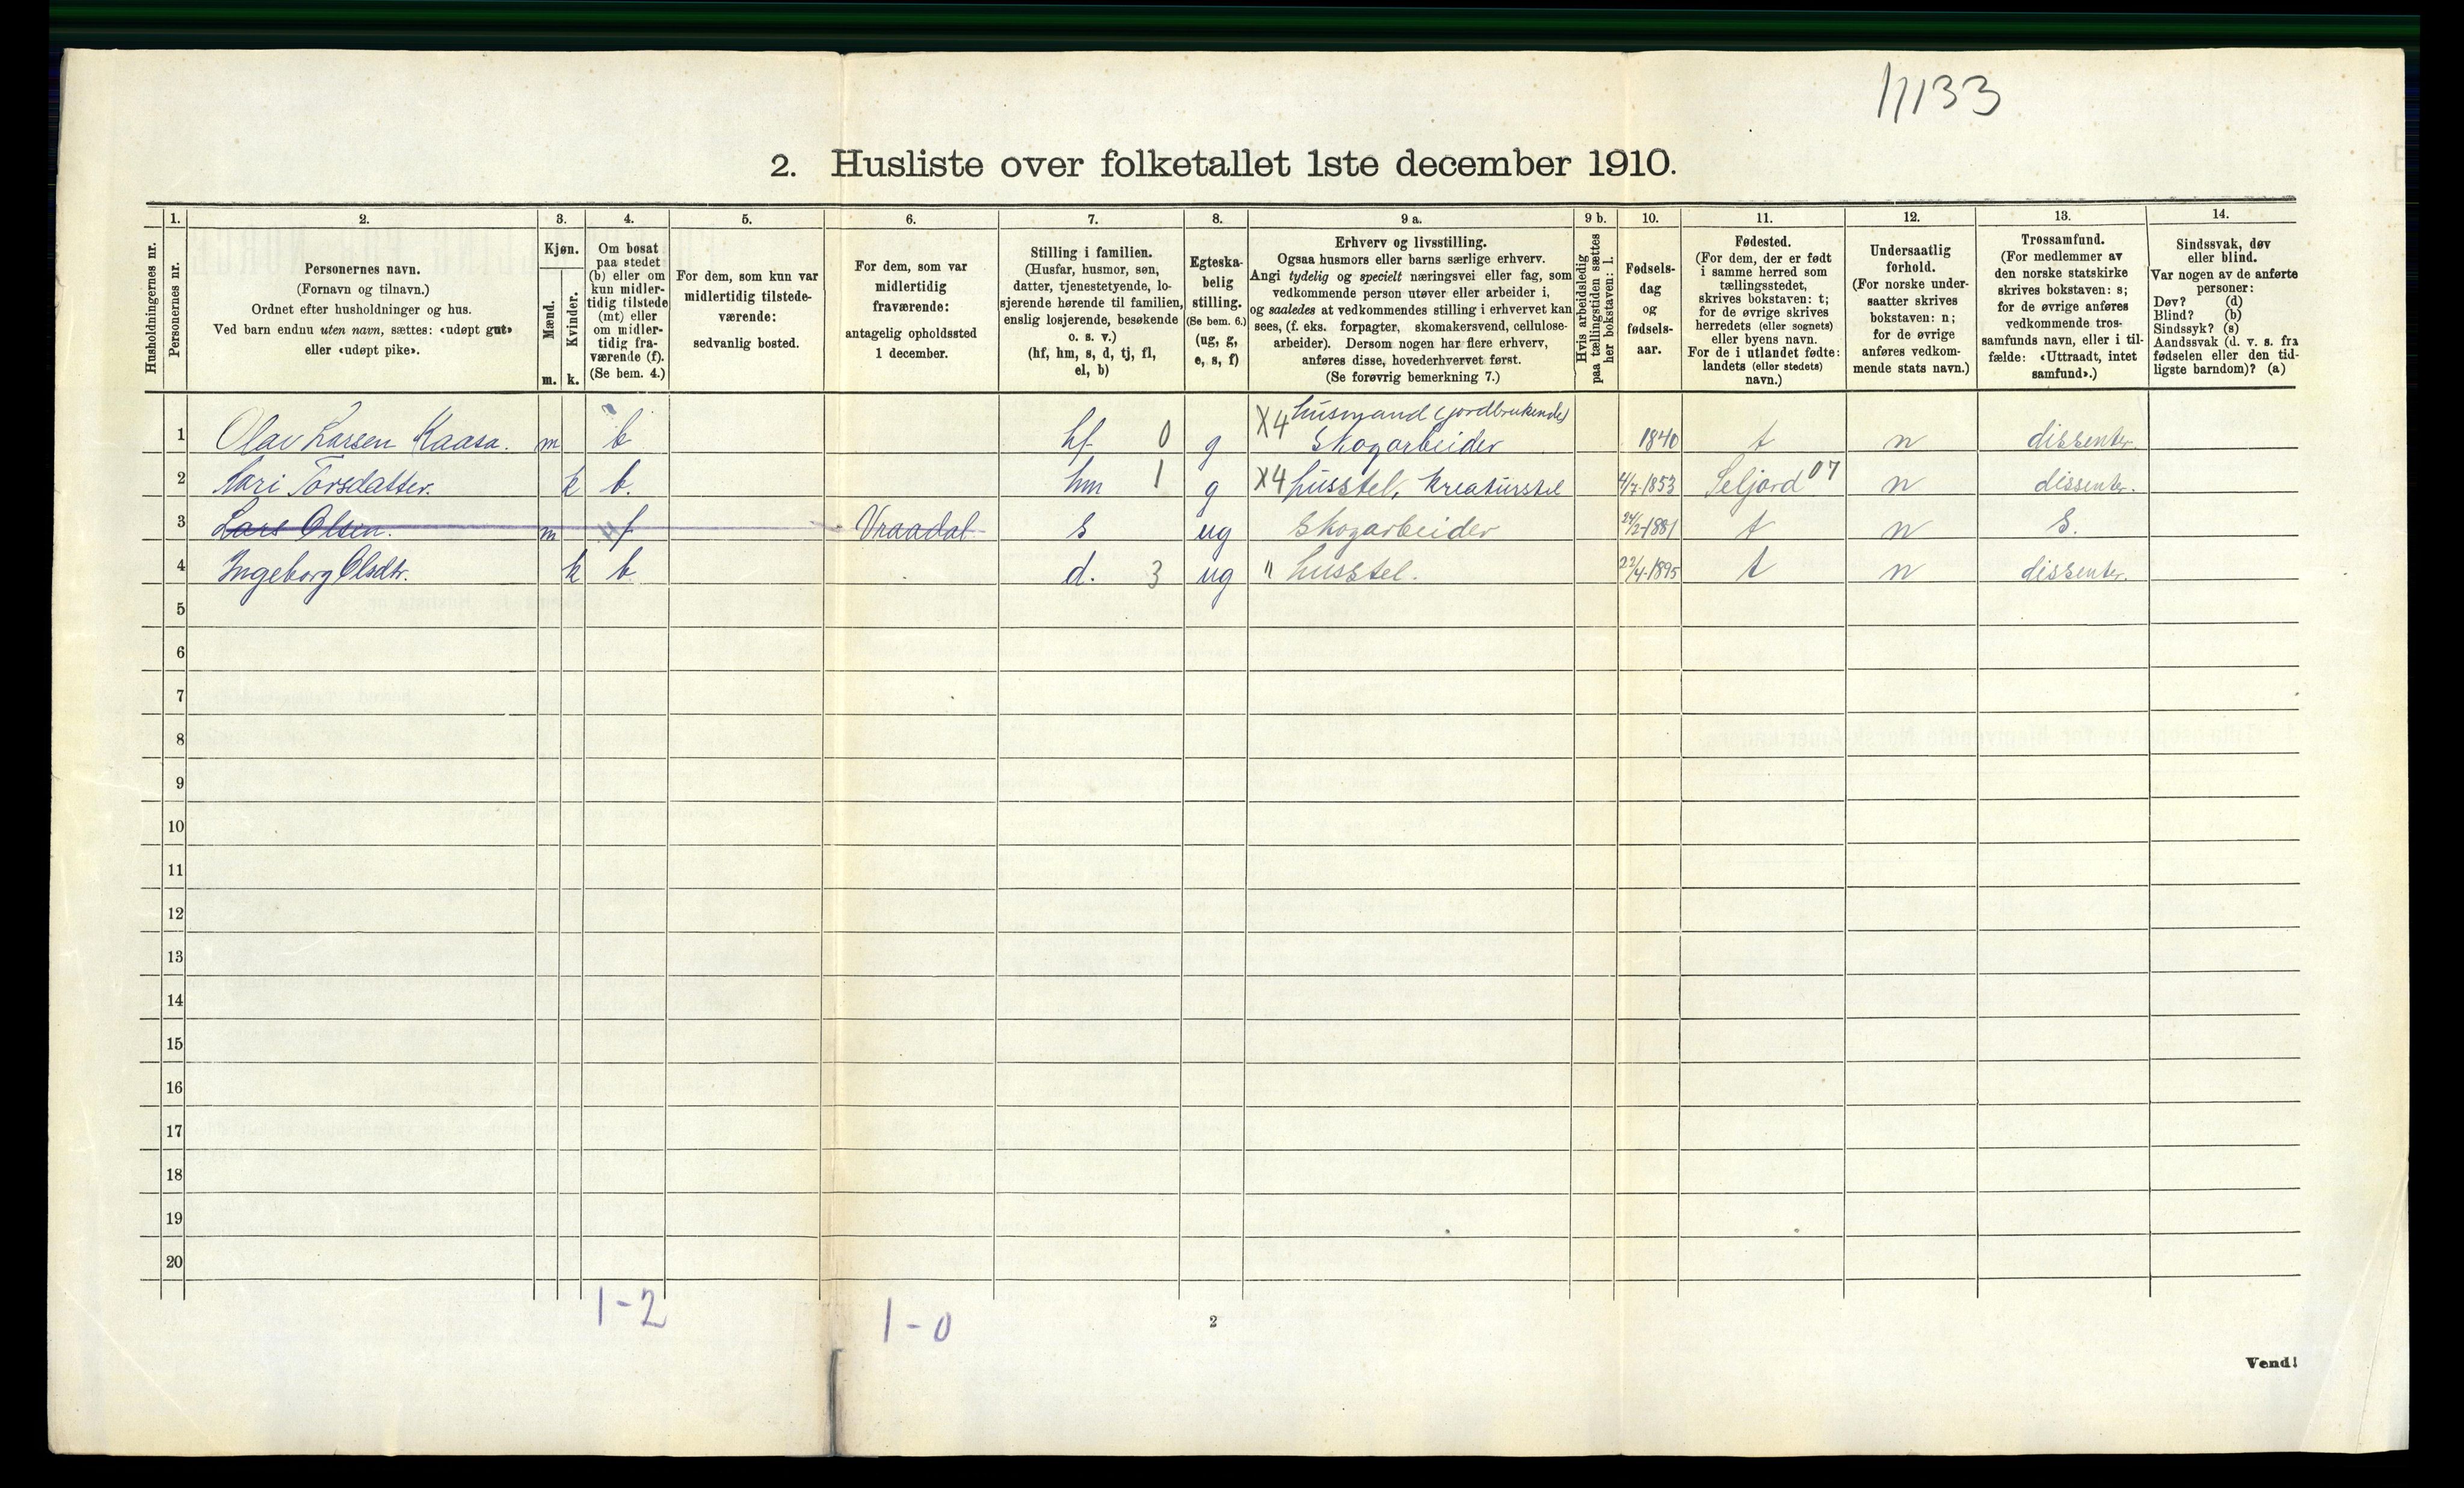 11133
2. Husliste over folketallet 1ste december 1910.
Husholdningernes nr.
1.
Personernes nr.
2.
Personernes navn.
(Fornavn og tilnavn.)
Ordnet efter husholdninger og hus.
Ved barn endnu uten navn, sættes: «udøpt gut»
eller «udøpt pike».
3.
Kjøn.
Mænd.
Kvinder.
m. k.
4.
Om bosat
paa stedet
(b) eller om
kun midler-
tidig tilstede
(mt) eller
om midler-
tidig fra-
værende (f).
(Se bem. 4.)
5.
For dem, som kun var
midlertidig tilstede-
værende:
sedvanlig bosted.
6.
For dem, som var
midlertidig
fraværende:
antagelig opholdssted
1 december.
7.
Stilling i familien.
(Husfar, husmor, søn,
datter, tjenestetyende, lo-
sjerende hørende til familien,
enslig losjerende, besøkende
o. s. v.)
(hf, hm, s, d, tj, fl,
el, b)
8.
Egteska-
belig
stilling.
(Se bem. 6.)
(ug, g,
e, s, f)
9 a.
Erhverv og livsstilling.
Ogsaa husmors eller barns særlige erhverv.
Angi tydelig og specielt næringsvei eller fag, som
vedkommende person utøver eller arbeider i,
og saaledes at vedkommendes stilling i erhvervet kan
sees, (f. eks. forpagter, skomakersvend, cellulose-
arbeider). Dersom nogen har flere erhverv,
anføres disse, hovederhvervet først.
(Se forøvrig bemerkning 7.)
9 b.
Hvis arbeidsledig
paa tællingstiden sættes
her bokstaven: l.
10.
Fødsels-
dag
og
fødsels-
aar.
11.
Fødested.
(For dem, der er født
i samme herred som
tællingsstedet,
skrives bokstaven: t;
for de øvrige skrives
herredets (eller sognets)
eller byens navn.
For de i utlandet fødte:
landets (eller stedets)
navn.)
12.
Undersaatlig
forhold.
(For norske under-
saatter skrives
bokstaven: n;
for de øvrige
anføres vedkom-
mende stats navn.)
13.
Trossamfund.
(For medlemmer av
den norske statskirke
skrives bokstaven: s;
for de øvrige anføres
vedkommende tros-
samfunds navn, eller i til-
fælde: «Uttraadt, intet
samfund».)
14.
Sindssvak, døv
eller blind.
Var nogen av de anførte
personer:
Døv? (d)
Blind? (b)
Sindssyk? (s)
Aandssvak (d. v. s. fra
fødselen eller den tid-
ligste barndom)? (a)
husmand (jordbrukende)
1 Olav Larsen Kaasa. m b hf 0 g X4 Skogarbeider 1840 t n dissenter.
2 Kari Torsdatter. k b. hm 1 g X4 husstel, kreaturstel 4/7-1853 Seljord 07 n dissenter.
3 Lars Olsen. m f Vraadal s ug Skogarbeider 24/2-1881 t n S.
4 Ingeborg Olsdtr. k b d. 3 ug " husstel. 22/4-1895 t n dissenter.
5
6
7
8
9
10
11
12
13
14
15
16
17
18
19
20
1-2
1-0
2
Vend!